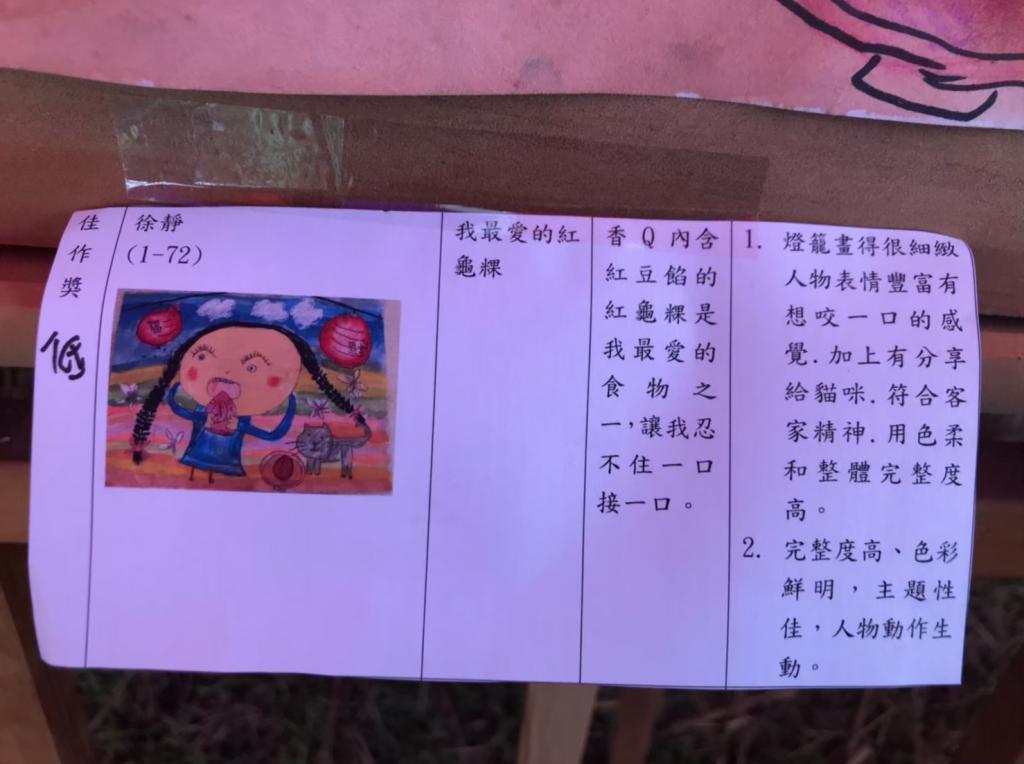 佳作獎
低
徐靜
(1-72)
我最愛的紅
龜粿
香Q內含
紅豆餡的
紅龜粿是
我最愛的
食物之
一，讓我忍
不住一口
接一口。
1. 燈籠畫得很細緻
人物表情豐富有
想咬一口的感
覺.加上有分享
給貓咪.符合客
家精神.用色柔
和整體完整度
高。
2. 完整度高、色彩
鮮明，主題性
佳，人物動作生
動。